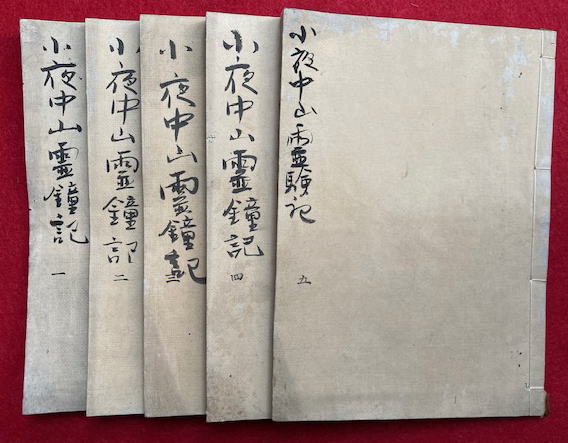 小夜中山霊鐘記 一
小夜中山霊鐘記 二
小夜中山霊鐘記 三
小夜中山霊鐘記 四
小夜中山霊験記 五